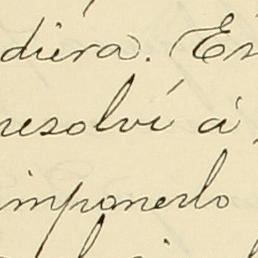 diera. Es
resolví á
imponerlo